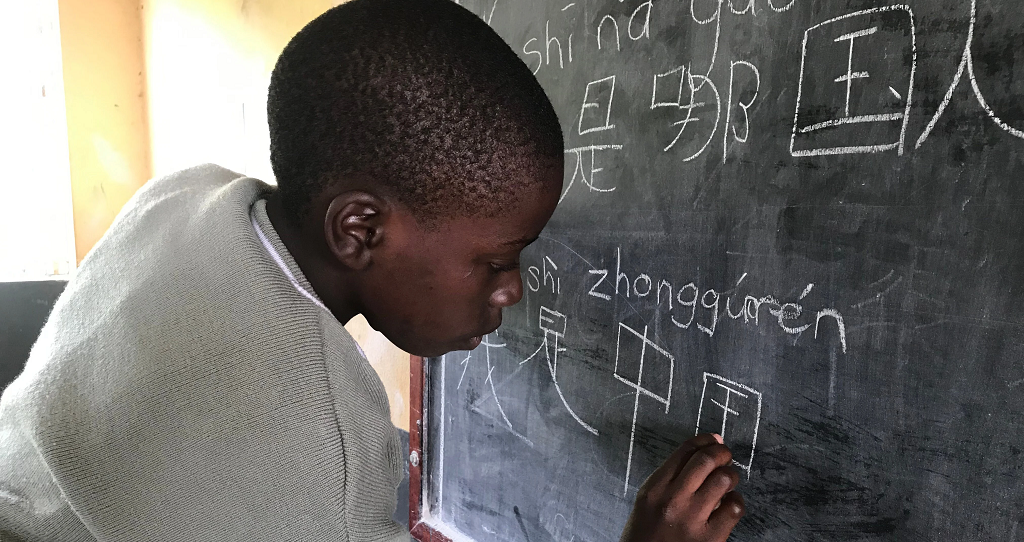 shī nǎ guó
是哪国人
shì zhongguórén
是中国